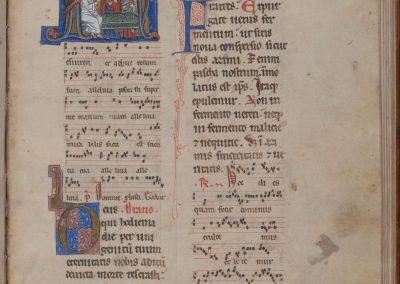 surrexi et adhuc tecum
sum alleluia posuisti super
me manum tuam alleluia
mirabilis facta est scien
tia tua alleluia alle
luia. p̄. Domine probasti
Deus Oratio.
qui hodierna
die per uni
genitū tuum
eternitatis nobis aditū
deuicta morte reserasti
Fratres: Expur
gate uetus fer
mentum: ut sitis
noua conspersio. sicut
estis azimi. Etenim
pascha nostrum īmo
latus est xp̄s. Itaq̄
epulemur. Non in
fermento ueteri. neq̄
in fermento malicie
et nequitie. S; ī azi
mis sinceritatis et ue
ritatis.
Hec dies
quam fecit dominus
exulte mus
et lete mur